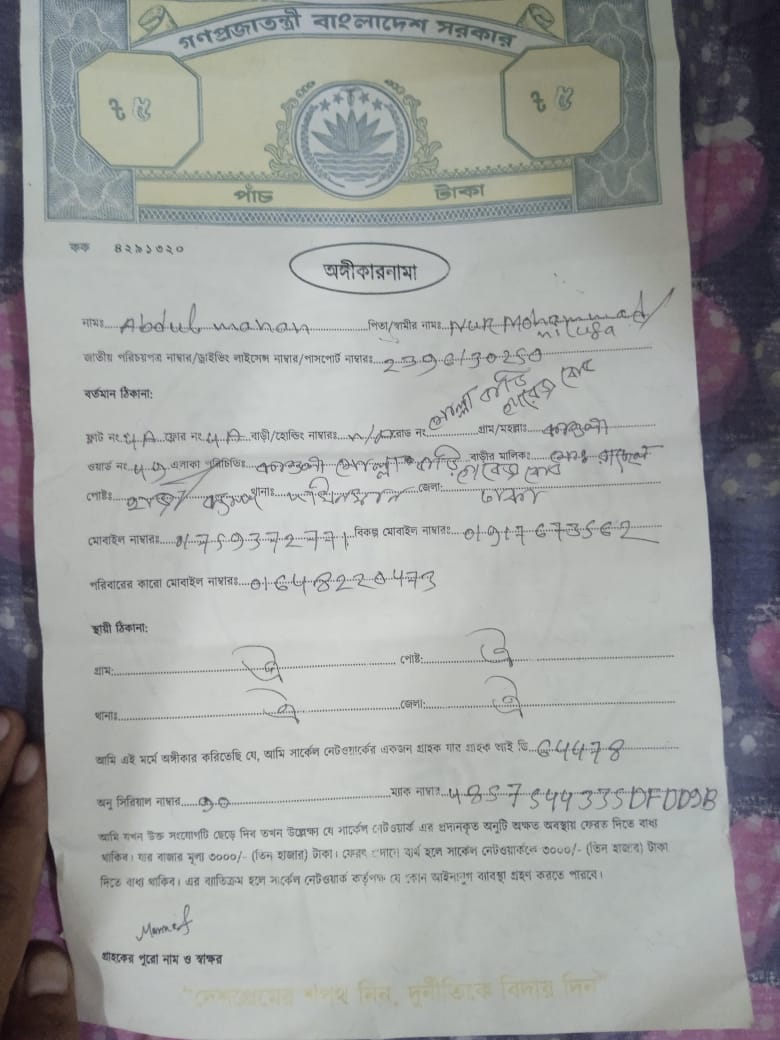 গণপ্রজাতন্ত্রী বাংলাদেশ সরকার
৳ ৫ ৳ ৫
পাঁচ টাকা
কক ৪২৯১৩২০
অঙ্গীকারনামা
নামঃ Abdul manan পিতা/স্বামীর নামঃ NUR Mohammad
জাতীয় পরিচয়পত্র নাম্বার/ড্রাইভিং লাইসেন্স নাম্বার/পাসপোর্ট নাম্বারঃ 2396130250
বর্তমান ঠিকানা:
ফ্লাট নং 4A ফ্লোর নং 4A বাড়ী/হোল্ডিং নাম্বারঃ n/A রোড নং মোল্লা বাড়ি গ্রাম/মহল্লাঃ
ওয়ার্ড নং ৪৩ এলাকা পরিচিতিঃ মোল্লা বাড়ি বাড়ীর মালিকঃ
পোষ্টঃ থানাঃ জেলা: ঢাকা
মোবাইল নাম্বারঃ 01759372771 বিকল্প মোবাইল নাম্বারঃ 01917673562
পরিবারের কারো মোবাইল নাম্বারঃ 01648220473
স্থায়ী ঠিকানা:
গ্রাম: ঐ পোষ্ট: ঐ
থানাঃ ঐ জেলা: ঐ
আমি এই মর্মে অঙ্গীকার করিতেছি যে, আমি সার্কেল নেটওয়ার্কের একজন গ্রাহক যার গ্রাহক আই ডি. 64478
অনু সিরিয়াল নাম্বার ম্যাক নাম্বার 4857544335DFDD9B
আমি যখন উক্ত সংযোগটি ছেড়ে দিব তখন উল্লেক্ষ্য যে সার্কেল নেটওয়ার্ক এর প্রদানকৃত অনুটি অক্ষত অবস্থায় ফেরত দিতে বাধ্য
থাকিব। যার বাজার মূল্য ৩০০০/- (তিন হাজার) টাকা। ফেরৎ প্রদানে ব্যর্থ হলে সার্কেল নেটওয়ার্ককে ৩০০০/- (তিন হাজার) টাকা
দিতে বাধ্য থাকিব। এর ব্যতিক্রম হলে সার্কেল নেটওয়ার্ক কর্তৃপক্ষ যে কোন আইনানুগ ব্যবস্থা গ্রহণ করতে পারবে।
গ্রাহকের পুরো নাম ও স্বাক্ষর
"দেশপ্রেমের শপথ নিন, দুর্নীতিকে বিদায় দিন"